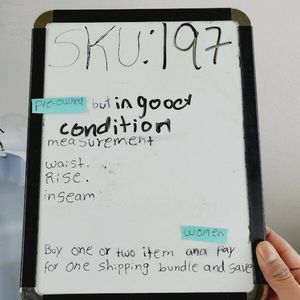 SKU:197
pre-owned but in good
condition
measurement
waist.
Rise.
inseam
women
Buy one or two item and Pay
for one shipping bundle and save